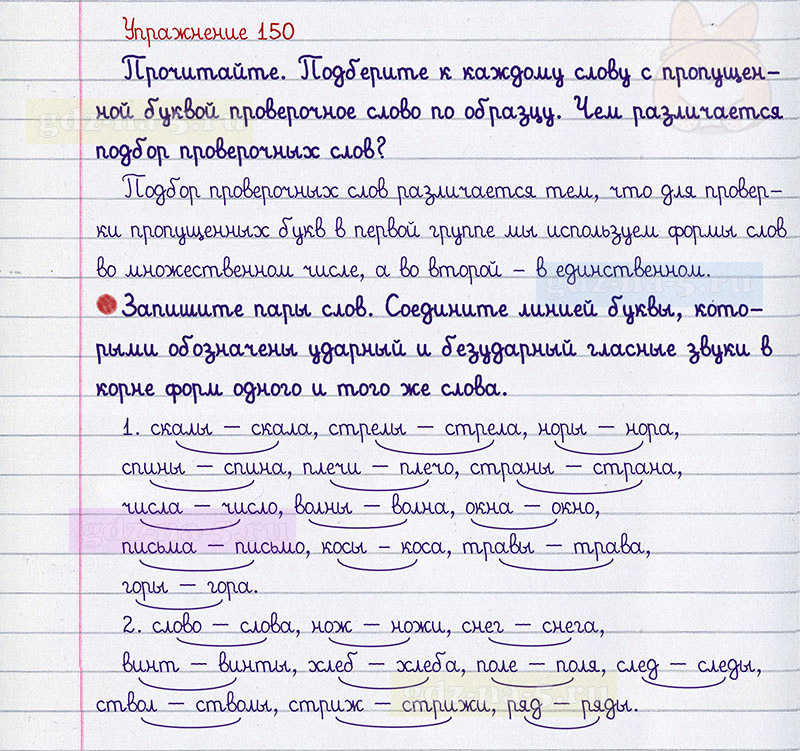 Упражнение 150
Прочитайте. Подберите к каждому слову с пропущен-
ной буквой проверочное слово по образцу. Чем различается
подбор проверочных слов?
Подбор проверочных слов различается тем, что для провер-
ки пропущенных букв в первой группе мы используем формы слов
во множественном числе, а во второй – в единственном.
Запишите пары слов. Соедините линией буквы, кото-
рыми обозначены ударный и безударный гласные звуки в
корне форм одного и того же слова.
1. скалы – скала, стрелы – стрела, норы – нора,
спины – спина, плечи – плечо, страны – страна,
числа – число, волны – волна, окна – окно,
письма – письмо, косы – коса, травы – трава,
горы – гора.
2. слово – слова, нож – ножи, снег – снега,
винт – винты, хлеб – хлеба, поле – поля, след – следы,
ствол – стволы, стриж – стрижи, ряд – ряды.
gdz-na-5.ru
gdz-na-5.ru
gdz-na-5.ru
gdz-na-5.ru